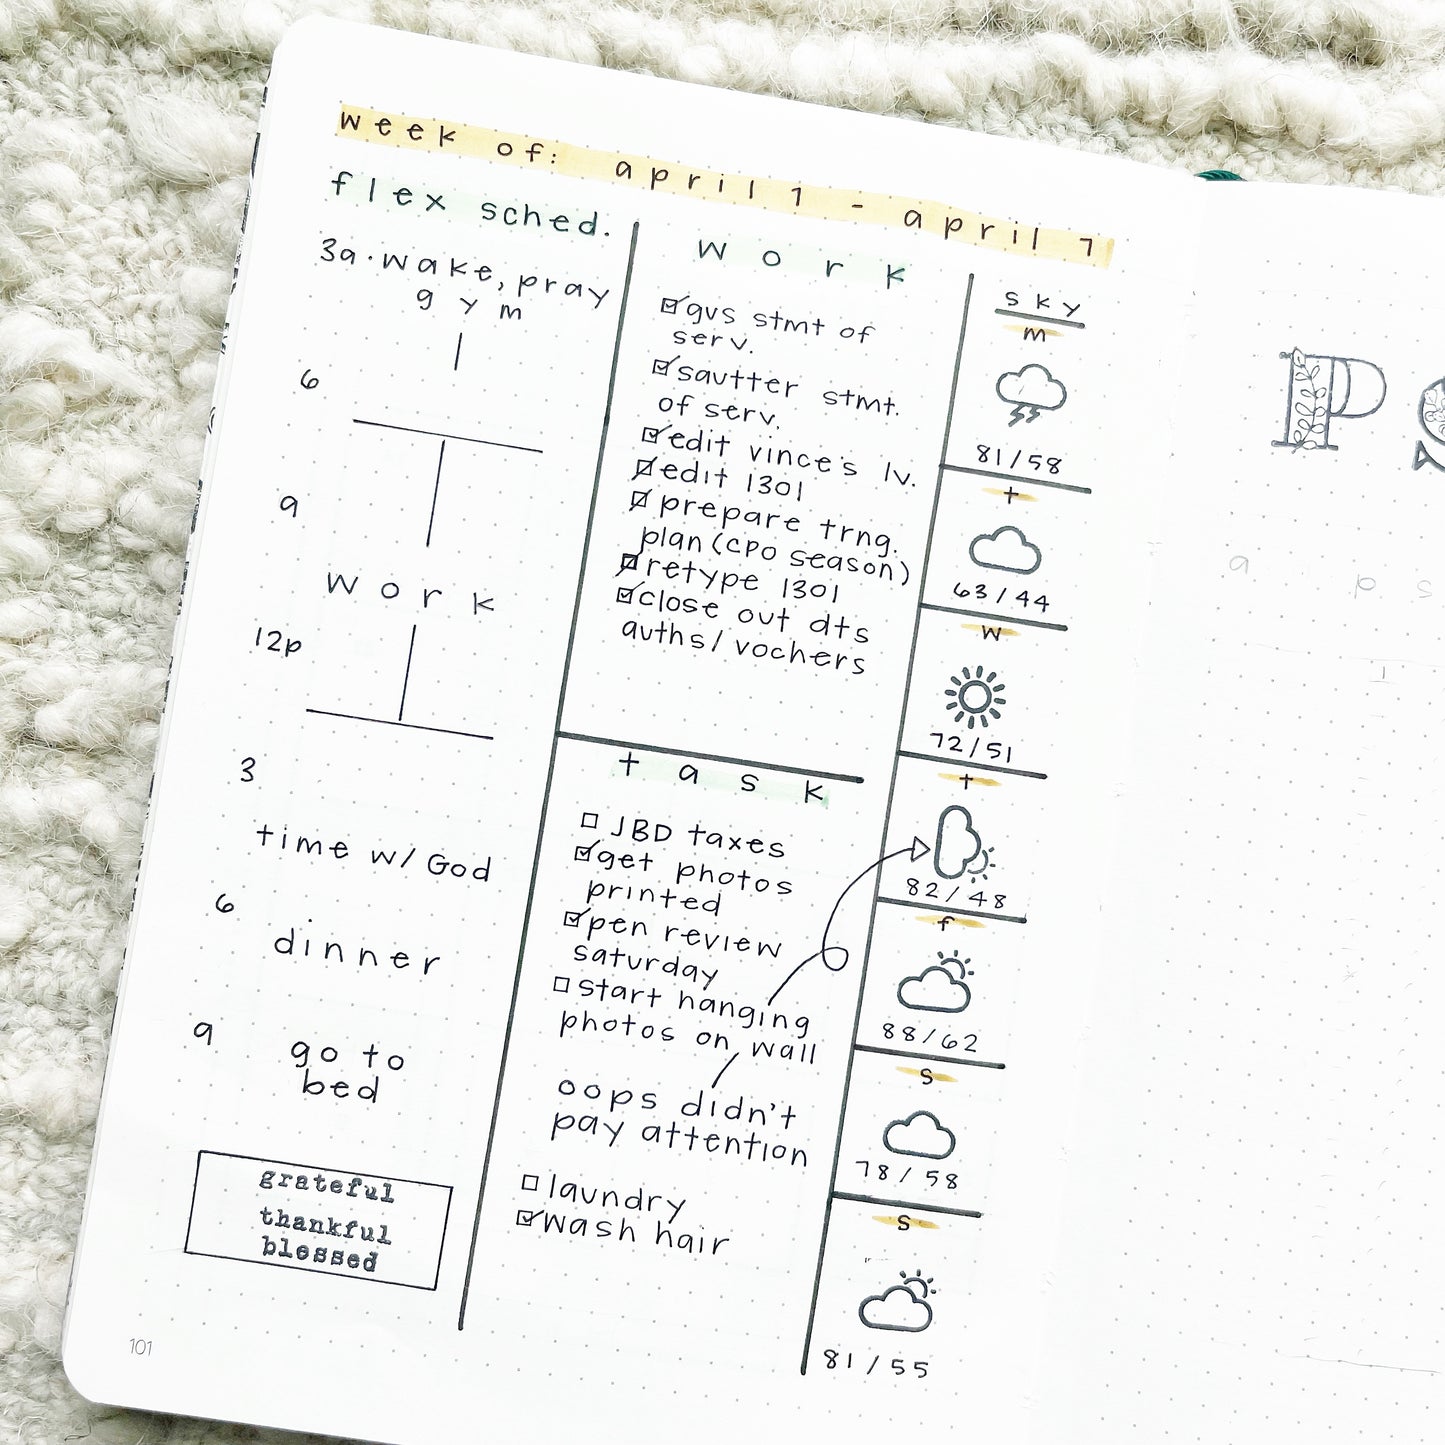 week of: april 1 - april 7
flex sched.
3a · wake, pray
gym
6
9
work
12p
3
time w/ God
6
dinner
9
go to
bed
grateful
thankful
blessed
101
work
gvs stmt of
serv.
sautter stmt.
of serv.
edit vince's lv.
edit 1301
prepare trng.
plan (cpo season)
retype 1301
close out dts
auths/vochers
task
JBD taxes
get photos
printed
pen review
saturday
start hanging
photos on wall
oops didn't
pay attention
laundry
wash hair
sky
m
81/58
t
63/44
w
72/51
t
82/48
f
88/62
s
78/58
s
81/55